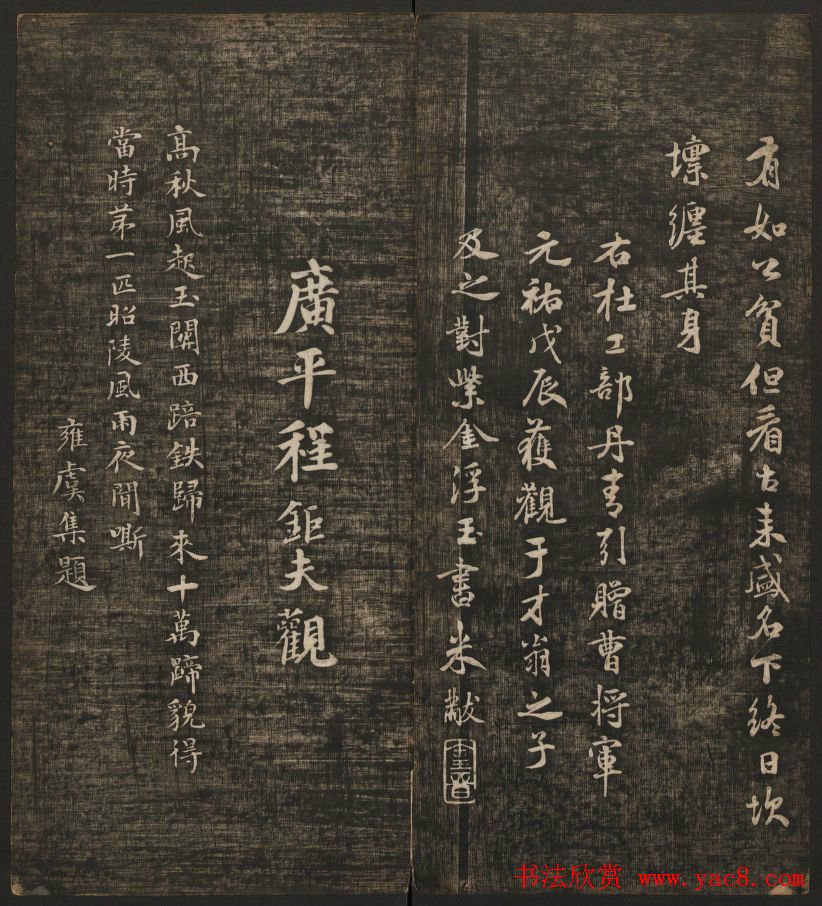 有如公貧但看古來盛名下終日坎
壈纏其身
右杜工部丹青引贈曹將軍
元祐戊辰獲觀于才翁之子
及之對紫金浮玉書米黻
廣平程鉅夫觀
高秋風起玉關西踣鉄歸來十萬蹄貌得
當時第一匹昭陵風雨夜聞嘶
雍虞集題
书法欣赏 www.yac8.com